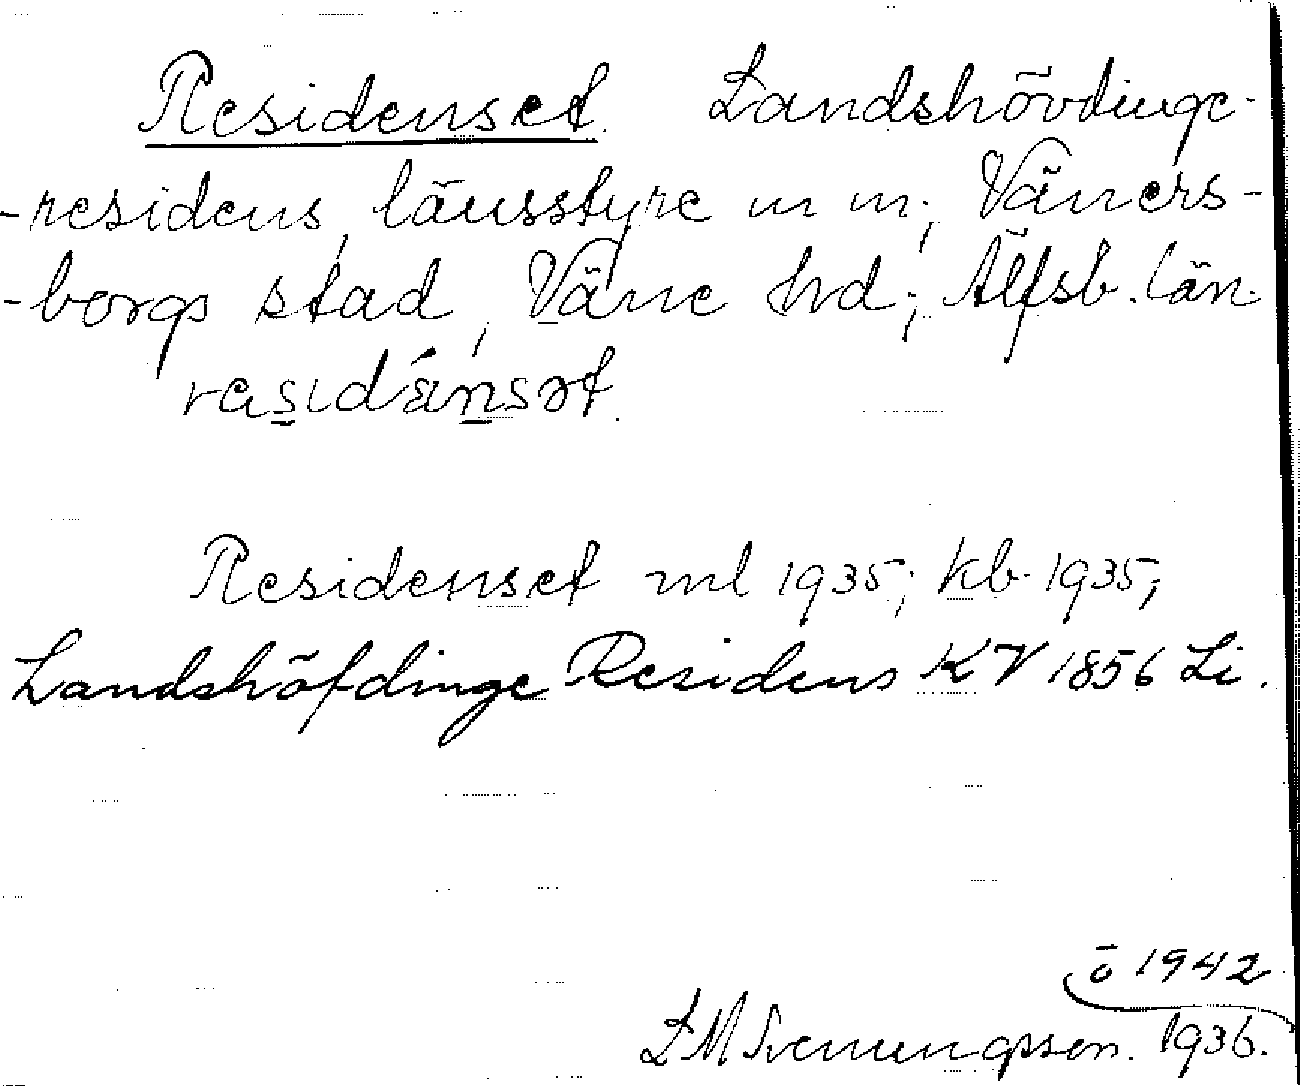 Residenset. Landshövdinge-
-residens, länsstyre m m; Väners-
-borgs stad, Väne hd; Älfsb. län.
residánsət.
Residenset ml 1935; kb 1935;
Landshöfdinge Residens KV 1856 Li.
ö 1942
1936.